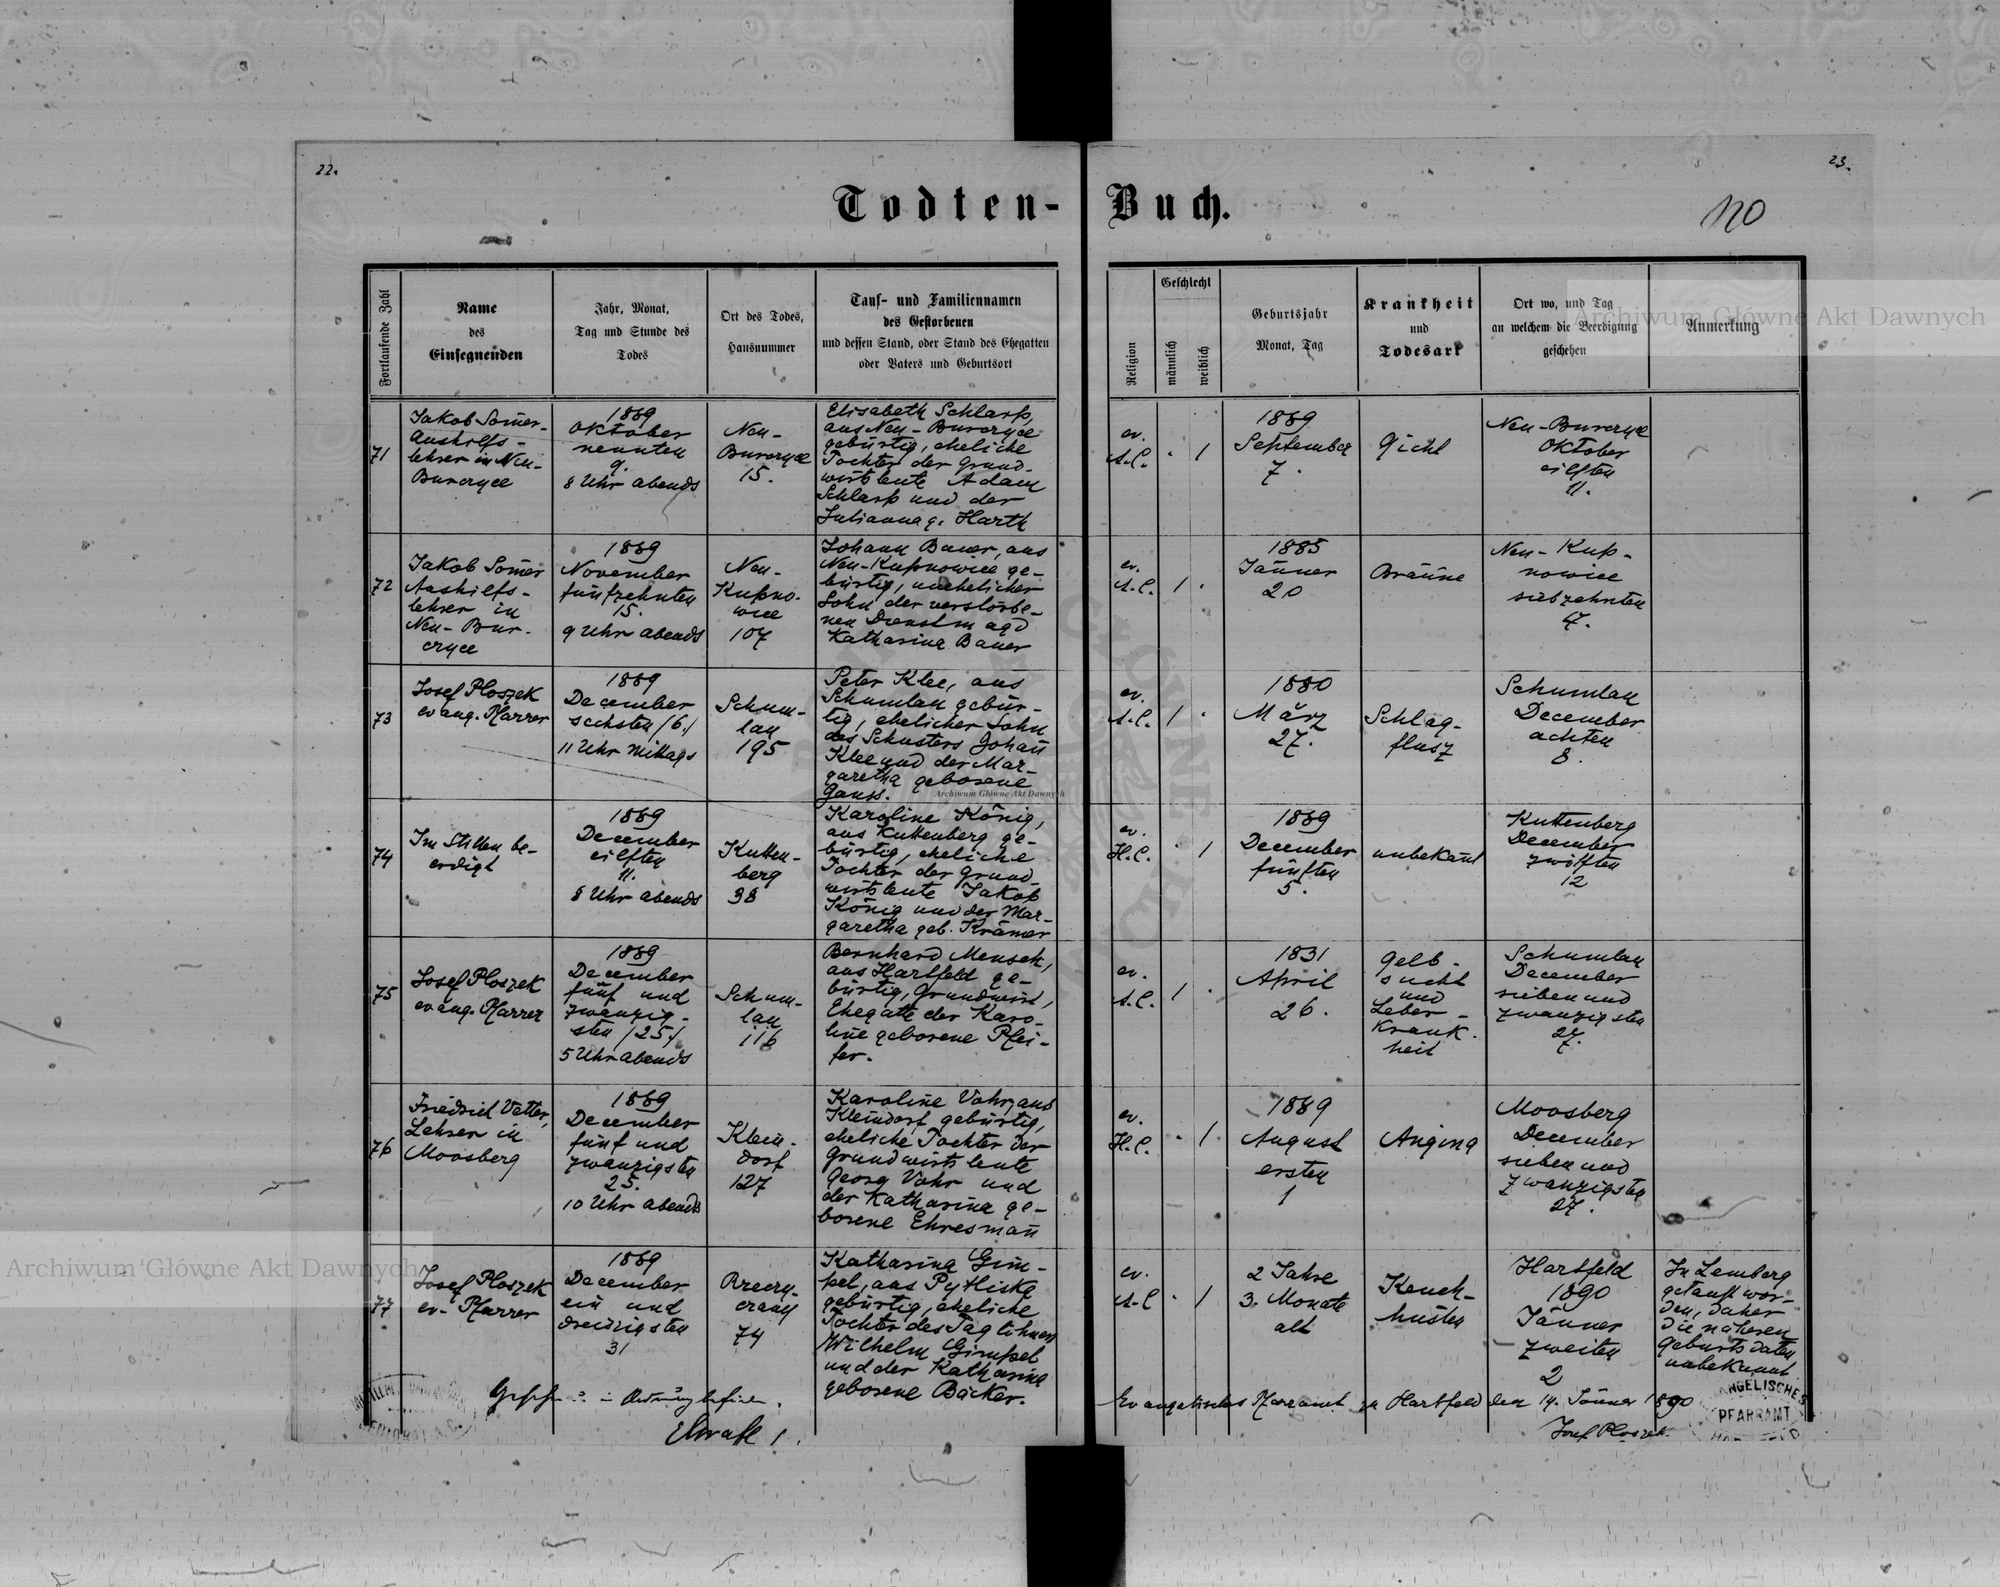 22.
23.
Todten-Buch.
120
Fortlaufende Zahl
Name
des
Einsegnenden
Jahr, Monat,
Tag und Stunde des
Todes
Ort des Todes,
Hausnummer
Tauf- und Familiennamen
des Gestorbenen
und dessen Stand, oder Stand des Ehegatten
oder Vaters und Geburtsort
Religion
Geschlecht
männlich
weiblich
Geburtsjahr
Monat, Tag
Krankheit
und
Todesart
Ort wo, und Tag
an welchem die Beerdigung
geschehen
Anmerkung
71
Jakob Somer-
Aushilfs-
lehrer in Neu-
Burczyce
1889
Oktober
neunten
9.
8 Uhr abends
Neu-
Burczyce
15.
Elisabeth Schlarp,
aus Neu-Burczyce
gebürtig, eheliche
Tochter der Grund-
wirtsleute Adam
Schlarp und der
Julianna g. Harth
ev.
A.C.
1
1889
September
7.
Gicht
Neu-Burczyce
Oktober
eilften
11.
72
Jakob Somer
Aushilfs-
lehrer in
Neu-Bur-
czyce
1889
November
fünfzehnten
15.
9 Uhr abends
Neu-
Kupno-
wice
107
Johann Bauer, aus
Neu-Kupnowice ge-
bürtig, unehelicher
Sohn der verstorbe-
nen Dienstmagd
Katharina Bauer
ev.
A.C.
1
1885
Jänner
20
Bräune
Neu-Kup-
nowice
siebzehnten
17.
73
Josef Ploszek
evang. Pfarrer
1889
December
sechsten /6./
11 Uhr Mittags
Schum-
lau
195
Peter Klee, aus
Schumlau gebür-
tig, ehelicher Sohn
des Schusters Johann
Klee und der Mar-
garetha geborene
Gauss.
ev.
A.C.
1
1880
März
27.
Schlag-
flusz
Schumlau
December
achten
8.
74
Im Stillen be-
erdigt
1889
December
eilften
11.
8 Uhr abends
Kutten-
berg
38
Karoline König,
aus Kuttenberg ge-
bürtig, eheliche
Tochter der Grund-
wirtsleute Jakob
König und der Mar-
garetha geb. Krämer
ev.
H.C.
1
1889
December
fünften
5.
unbekant
Kuttenberg
December
zwölften
12
75
Josef Ploszek
evang. Pfarrer
1889
December
fünf und
zwanzig-
sten /25/
5 Uhr abends
Schum-
lau
116
Bernhard Mensch,
aus Hartfeld ge-
bürtig, Grundwirt,
Ehegatte der Karo-
line geborene Pfei-
fer.
ev.
A.C.
1
1831
April
26.
Gelb-
sucht
und
Leber-
krank-
heit
Schumlau
December
sieben und
zwanzigsten
27.
76
Friedrich Vetter,
Lehrer in
Moosberg
1889
December
fünf und
zwanzigsten
25.
10 Uhr abends
Klein-
dorf
127
Karoline Vohr, aus
Kleindorf gebürtig,
eheliche Tochter der
Grundwirtsleute
Georg Vohr und
der Katharina ge-
borene Ehresmann
ev.
H.C.
1
1889
August
ersten
1
Angina
Moosberg
December
sieben und
zwanzigsten
27.
77
Josef Ploszek
ev. Pfarrer
1889
December
ein und
dreizigsten
31
Rzeczy-
czany
74
Katharina Gim-
pel, aus
gebürtig, eheliche
Tochter des Taglöhners
Wilhelm Gimpel
und der Katharina
geborene Bäcker.
ev.
A.C
1
2 Jahre
3. Monate
alt
Keuch-
husten
Hartfeld
1890
Jänner
zweiten
2
In Lemberg
getauft wor-
den, daher
die näheren
Geburtsdaten
unbekannt
Evangelisches Pfarramt zu Hartfeld den 14. Jänner 1890
Josef Ploszek
EVANGELISCHES
PFARRAMT
Archiwum Główne Akt Dawnych
Archiwum Główne Akt Dawnych
Archiwum Główne Akt Dawnych